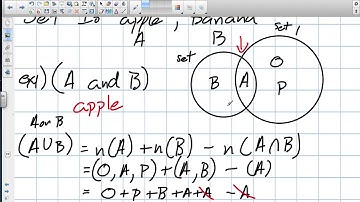 apple, banana
A B
set set 1
B A O P
ex1) (A and B)
apple
A or B
(A∪B) = n(A) + n(B) - n(A∩B)
= (O, A, P) + (A, B) - (A)
= O + P + B + A + A - A